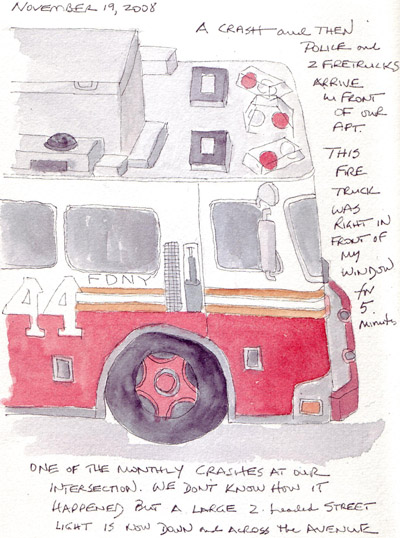 NOVEMBER 19, 2008
A CRASH and THEN
POLICE and
2 FIRETRUCKS
ARRIVE
IN FRONT
OF OUR
APT.
THIS
FIRE
TRUCK
WAS
RIGHT IN
FRONT OF
MY
WINDOW
for
5
minutes
FDNY
44
ONE OF THE MONTHLY CRASHES AT OUR
INTERSECTION. WE DON'T KNOW HOW IT
HAPPENED BUT A LARGE 2-headed STREET
LIGHT IS NOW DOWN and ACROSS the AVENUE